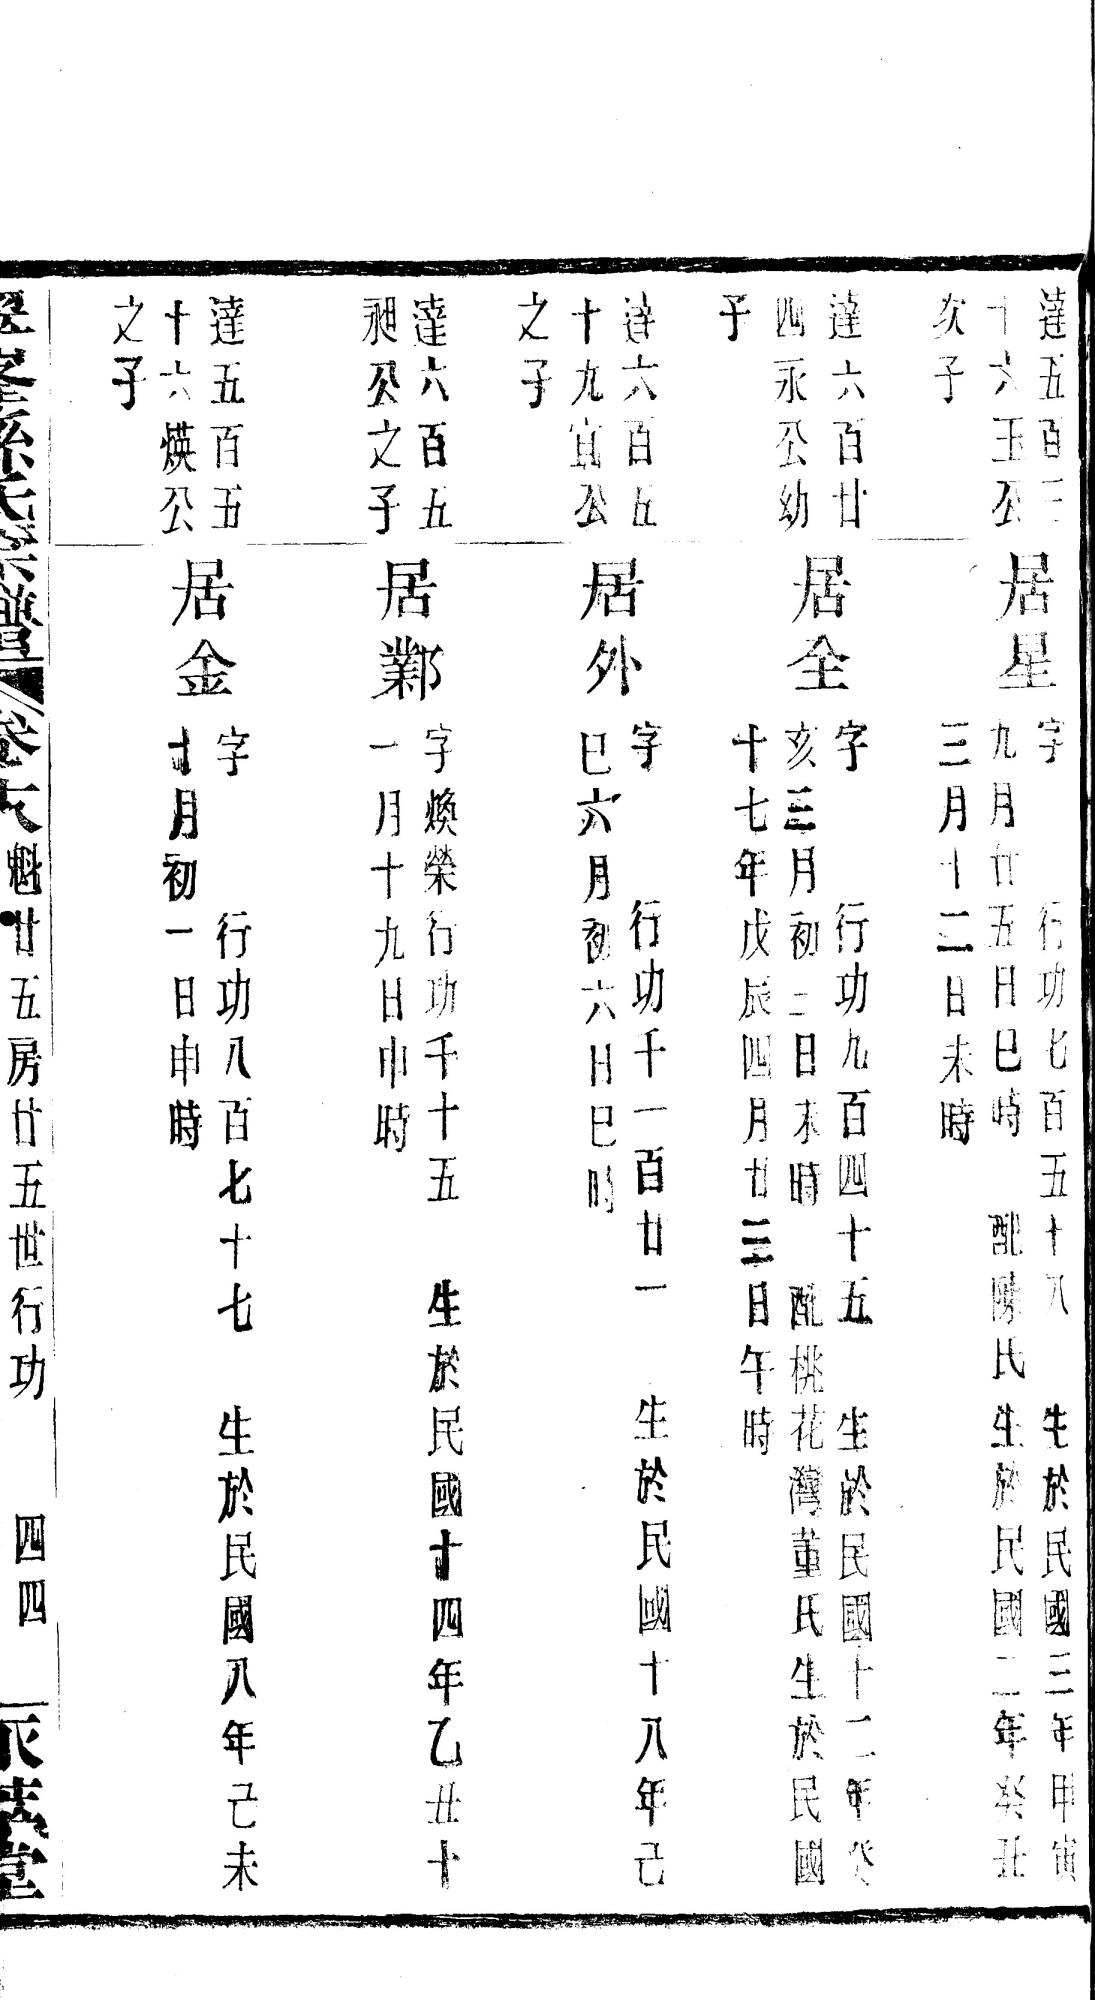 達五百三
十六玉公
次子
居星
字　行功七百五十八　生於民國三年甲寅
九月廿五日巳時　配陳氏生於民國二年癸丑
三月十二日未時
達六百廿
四永公幼
子
居全
字　行功九百四十五　生於民國十二年癸
亥三月初二日未時　配桃花灣董氏生於民國
十七年戊辰四月廿三日午時
達六百五
十九宜公
之子
居外
字　行功千一百廿一　生於民國十八年己
巳六月初六日巳時
達六百五
昶公之子
居鄴
字煥榮行功千十五　生於民國十四年乙丑十
一月十九日申時
達五百五
十六煐公
之子
居金
字　行功八百七十七　生於民國八年己未
十月初一日申時
峯孫氏宗譜
魁廿五房廿五世行功
四四
堂